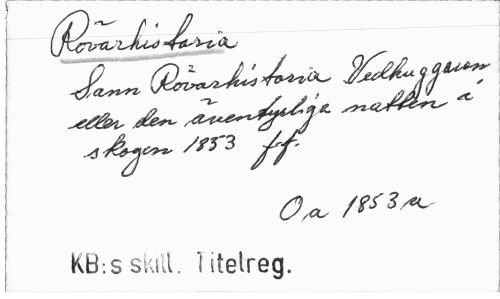 Rövarhistoria
Sann Rövarhistoria Vedhuggaren
eller den äventyrliga natten å
skogen 1853 ff.
Oa 1853 a
KB:s skill. Titelreg.